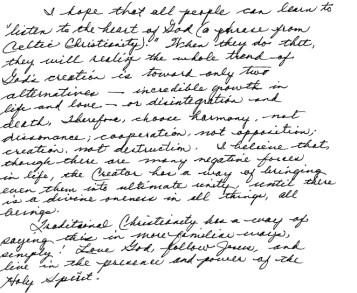 I hope that all people can learn to
"listen to the heart of God (a phrase from
Celtic Christianity)." When they do that,
they will realize the whole trend of
God's creation is toward only two
alternatives — incredible growth in
life and love — or disintegration and
death. Therefore, choose harmony, not
dissonance; cooperation, not opposition;
creation, not destruction. I believe that,
though there are many negative forces
in life, the Creator has a way of bringing
even them into ultimate unity, until there
is a divine oneness in all things, all
beings.
Traditional Christianity has a way of
saying this in more familiar ways,
simply: Love God, follow Jesus, and
live in the presence and power of the
Holy Spirit.